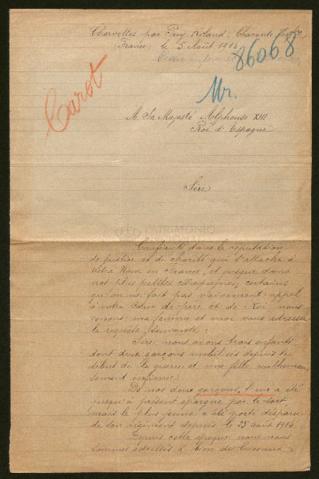 Charvettes par Puy Rolland, Charente Infre
France, le 5 Août 1916
86068
Carot
Mr.
A Sa Majesté Alphonse XIII
Roi d'Espagne
Sire
PATRIMONIO
Confiants dans la réputation
de justice et de charité qui s'attache à
votre Nom en France, et jusque dans
nos plus petites campagnes, certains
qu'on ne fait pas vainement appel
à votre cœur de Père et de Roi, nous
venons, ma femme et moi vous adresser
la requête suivante:
Sire, nous avons trois enfants
dont deux garçons mobilisés depuis le
début de la guerre et une fille malheureu-
sement infirme.
De nos deux garçons, l'un a été
jusqu'à présent épargné par le sort,
mais le plus jeune a été porté disparu
de son régiment depuis le 25 août 1914.
Depuis cette époque nous nous
sommes adressés à bien des